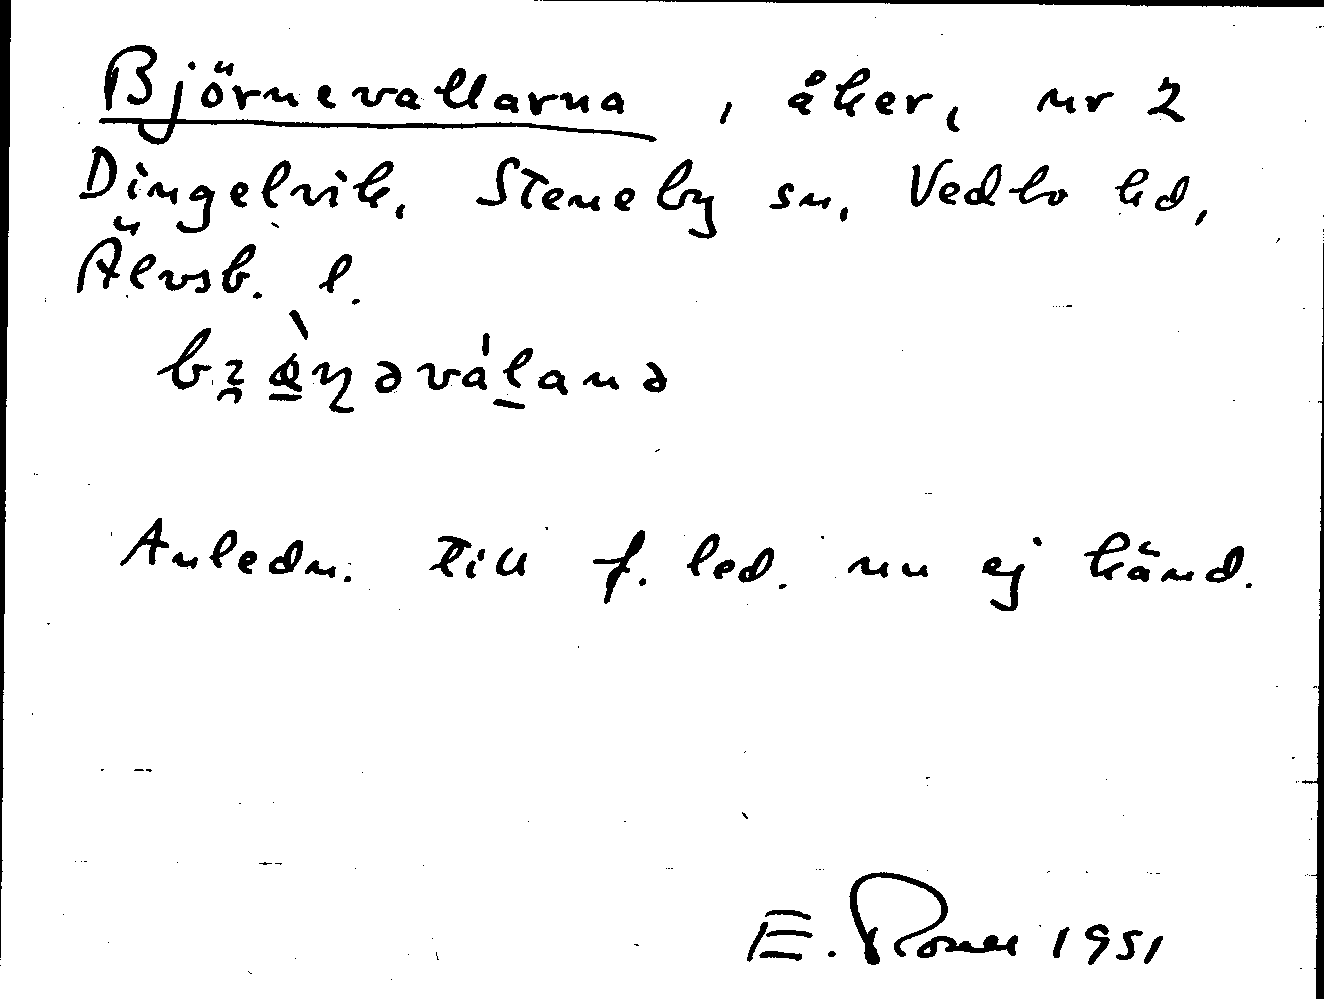 Björnevallarna, åker, nr 2
Dingelvik, Steneby sn, Vedbo hd,
Älvsb. l.
Anledn. till f. led. nu ej känd.
E. 1951